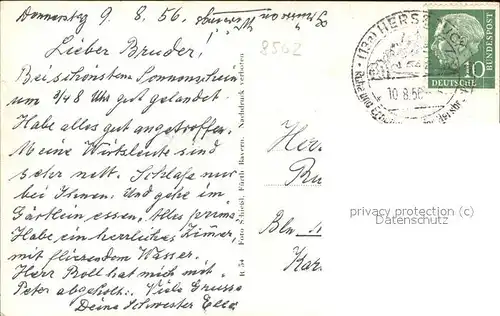 Donnerstag 9. 8. 56.
8502
Lieber Bruder!
Bei schönstem Sonnenschein
um 3/48 Uhr gut gelandet.
Habe alles gut angetroffen.
Meine Wirtsleute sind
sehr nett. Schlafe nur
bei Ihnen. Und gehe im
Gärtlein essen, Alles prima.
Habe ein herrliches Zimmer,
mit fließendem Wasser.
Herr Roll hat mich mit
Peter abgeholt. Viele Grüsse
Deine Schwester Ella
R 54 Foto Scheidl, Fürth Bayern. Nachdruck verboten
(13a) HERSBRUCK
10.8.56
Ruhe und
DEUTSCHE BUNDESPOST
10
Her
Ru
Bln
Kar
privacy protection (c)
Datenschutz (c)